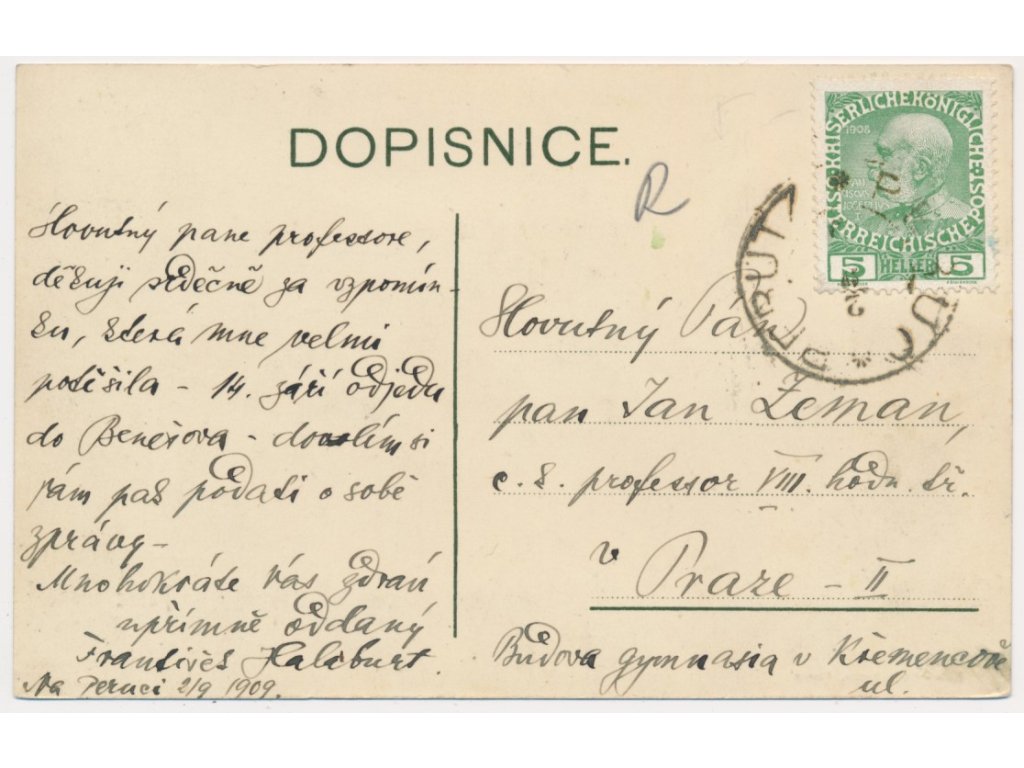 DOPISNICE.
R
Slovutný pane professore,
děkuji srdečně za vzpomín-
ku, která mne velmi
potěšila - 14. září odjedu
do Benešova - dovolím si
vám pak podati o sobě
zprávy -
Mnohokráte Vás zdraví
upřímně oddaný
František Halaburt.
Na Peruci 2/9 1909.
KAISERLICHE KÖNIGLICHE ÖSTERREICHISCHE POST
1908
5 HELLER 5
PERUTZ
PERUC
Slovutný Pán
pan Jan Zeman,
c. k. professor VIII. hodn. tř.
v Praze - II
Budova gymnasia v Křemencově
ul.